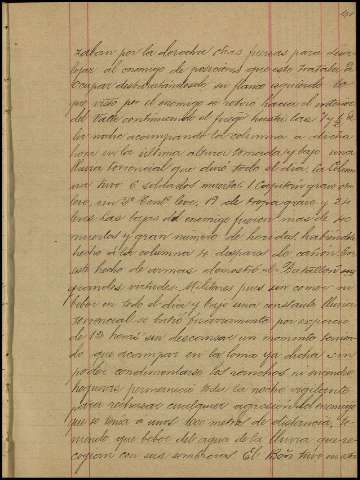 zaban por la derecha otras fuerzas para desa-
lojar al enemigo de posiciones que este trataba de
ocupar desbordandole su flanco izquierdo lo
que visto por el enemigo se retiro hacia el interior
del Valle continuando el fuego hasta las 7 y ½ de
la noche acampando la columna a dicha
hora en la última altura tomada y bajo una
lluvia torrencial que duró todo el dia. la Colum-
na tuvo 6 soldados muertos 1 Capitan grave
un 2º Tente leve, 19 de tropa grave y 24
leves las bajas del enemigo fueron mas de 40
muertos y gran número de heridos habiendole
hecho á la columna 20 disparos de cañon. En
este hecho de armas demostró el Batallón sus
grandes virtudes Militares pues sin comer ni
beber en todo el dia y bajo una constante lluvia
torrencial se batió por espacio
de 12 horas sin descansar un momento tenien-
do que acampar en la loma ya dicha sin
poder condimentarse los ranchos ni encender
hogueras permaneció toda la noche vigilante
para rechazar cualquier agresión del enemigo
que se tenia a unos 200 metros de distancia, te-
niendo que beber del agua de la lluvia que re-
cogian con sus sombreros El Bon tuvo